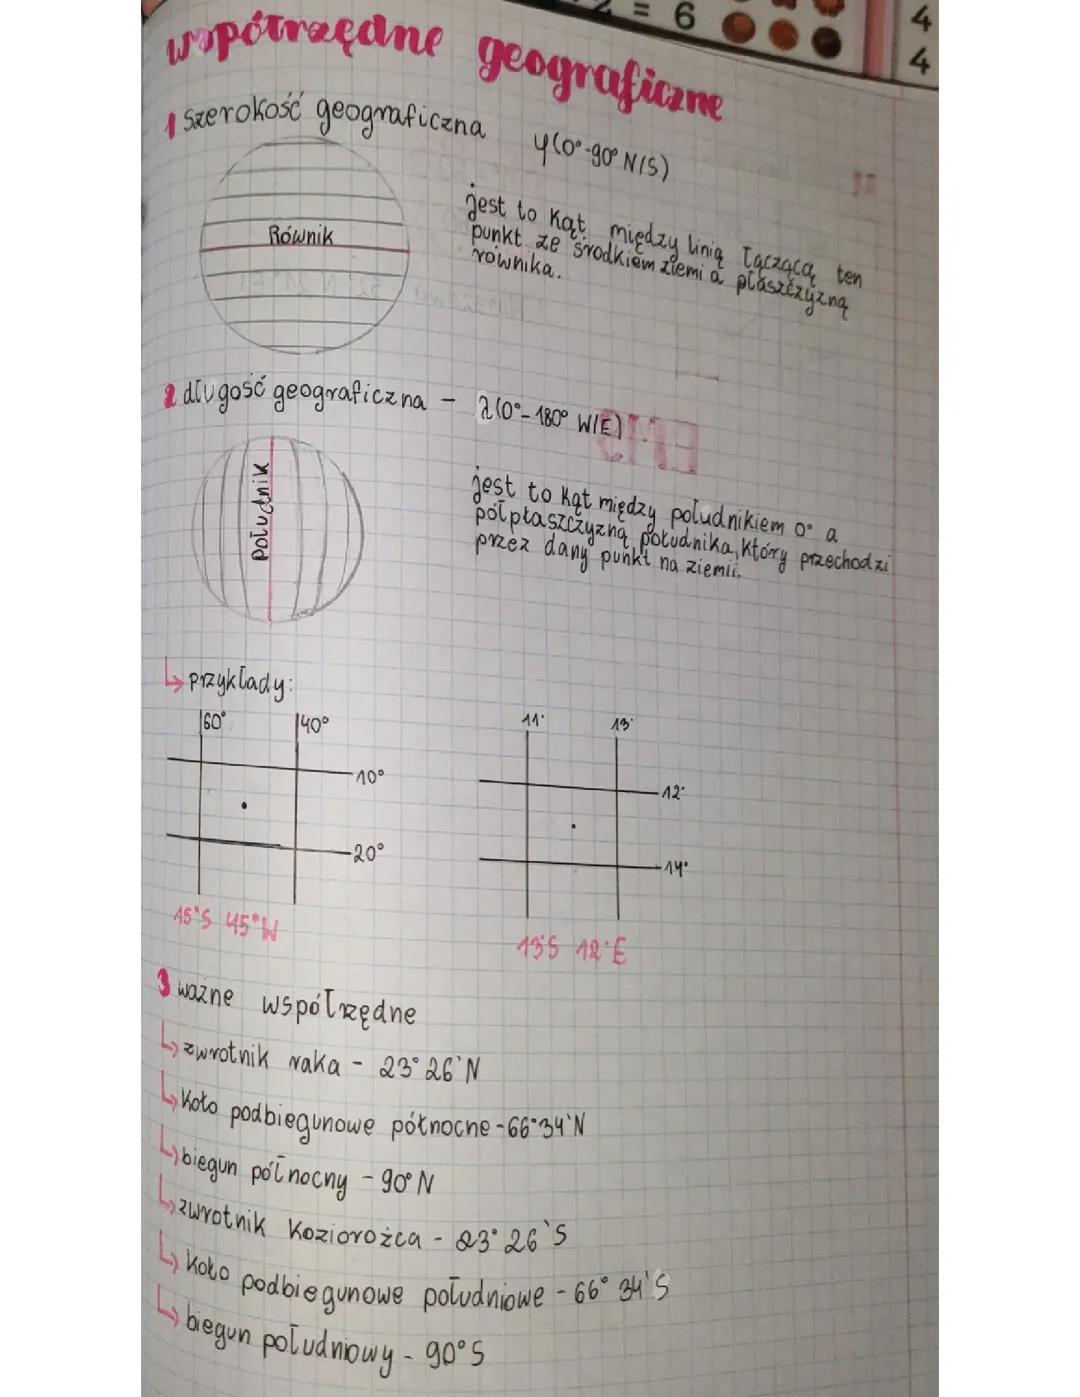 2 = 6
4
4
współrzędne geograficzne
1 szerokość geograficzna φ(0°-90° N/S)
Równik
jest to kąt między linią łączącą ten
punkt ze środkiem ziemi a płaszczyzną
równika.
2 długość geograficzna - λ(0°-180° W/E)
południk
jest to kąt między południkiem 0° a
półpłaszczyzną południka, który przechodzi
przez dany punkt na ziemii.
↳ przykłady:
60° 40°
10°
20°
15°S 45°W
11° 13°
12°
14°
13°S 12°E
3 ważne współrzędne
↳ zwrotnik raka - 23°26'N
↳ koło podbiegunowe północne - 66°34'N
↳ biegun północny - 90°N
↳ zwrotnik koziorożca - 23°26'S
↳ koło podbiegunowe południowe - 66°34'S
↳ biegun południowy - 90°S